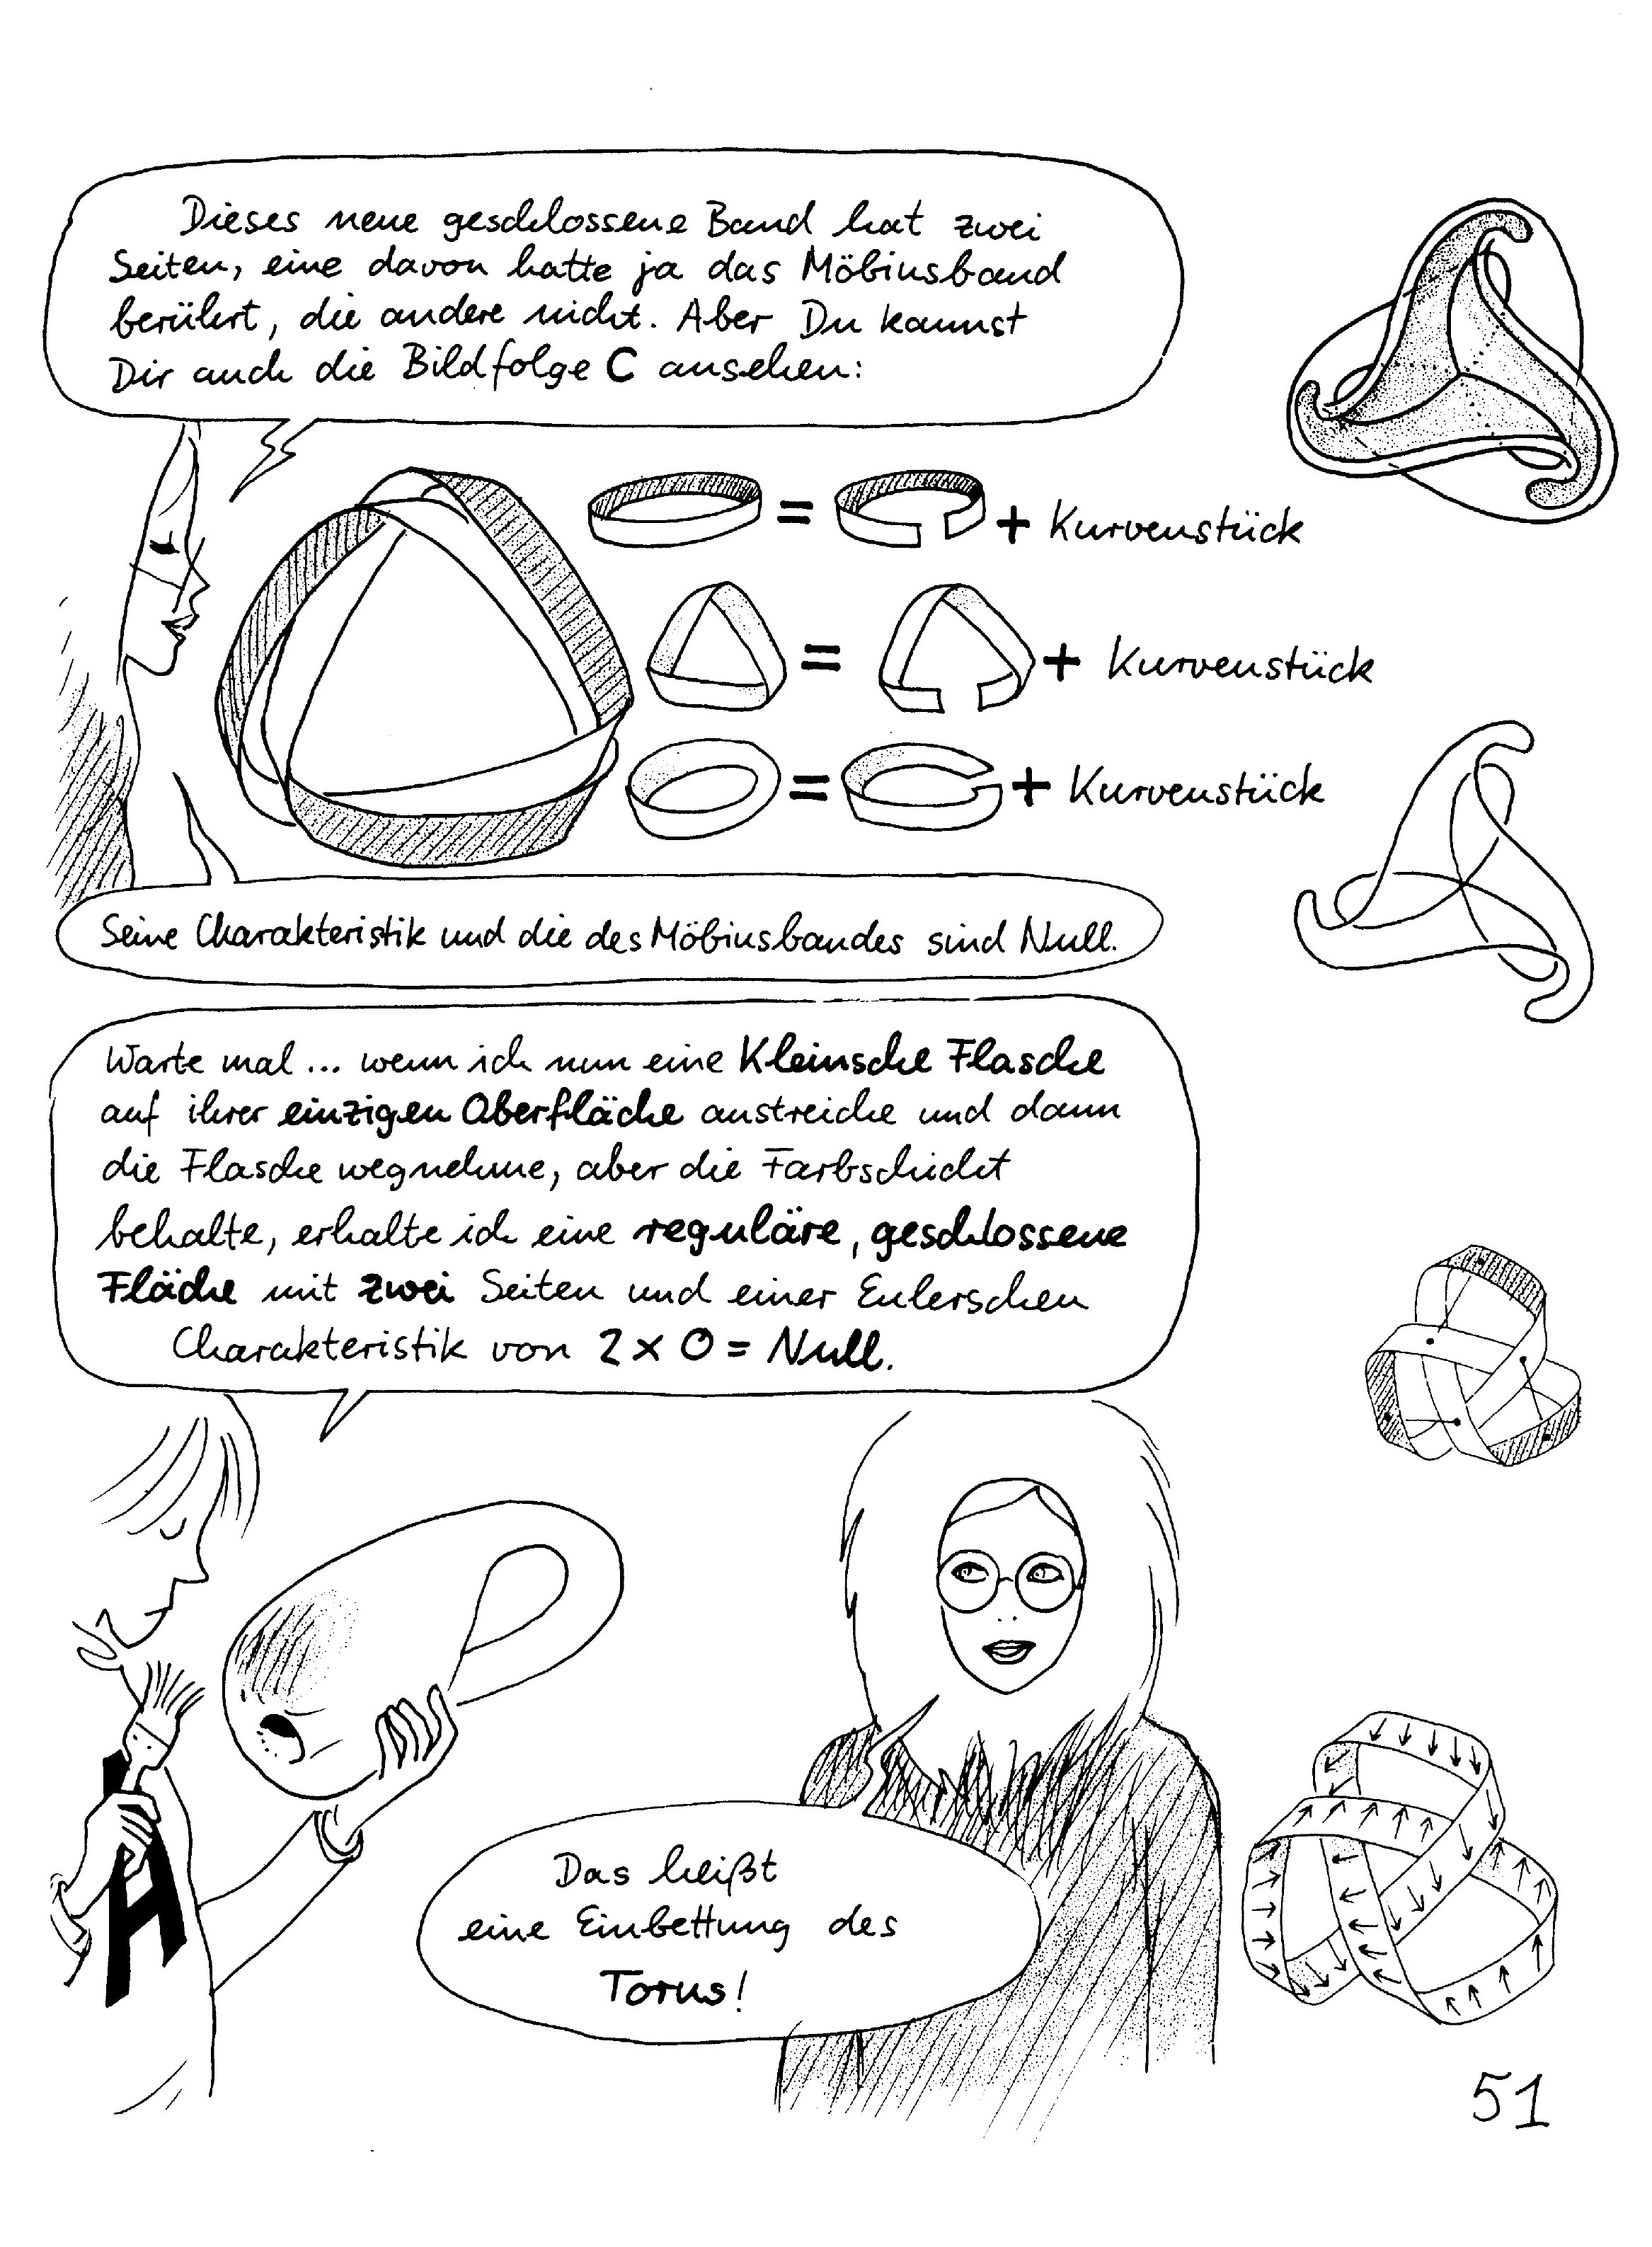 Dieses neue geschlossene Band hat zwei
Seiten, eine davon hatte ja das Möbiusband
berührt, die andere nicht. Aber Du kannst
Dir auch die Bildfolge C ansehen:
= + Kurvenstück
= + Kurvenstück
= + Kurvenstück
Seine Charakteristik und die des Möbiusbandes sind Null.
Warte mal... wenn ich nun eine Kleinsche Flasche
auf ihrer einzigen Oberfläche anstreiche und dann
die Flasche wegnehme, aber die Farbschicht
behalte, erhalte ich eine reguläre, geschlossene
Fläche mit zwei Seiten und einer Eulerschen
Charakteristik von 2 x 0 = Null.
A
Das heißt
eine Einbettung des
Torus!
51